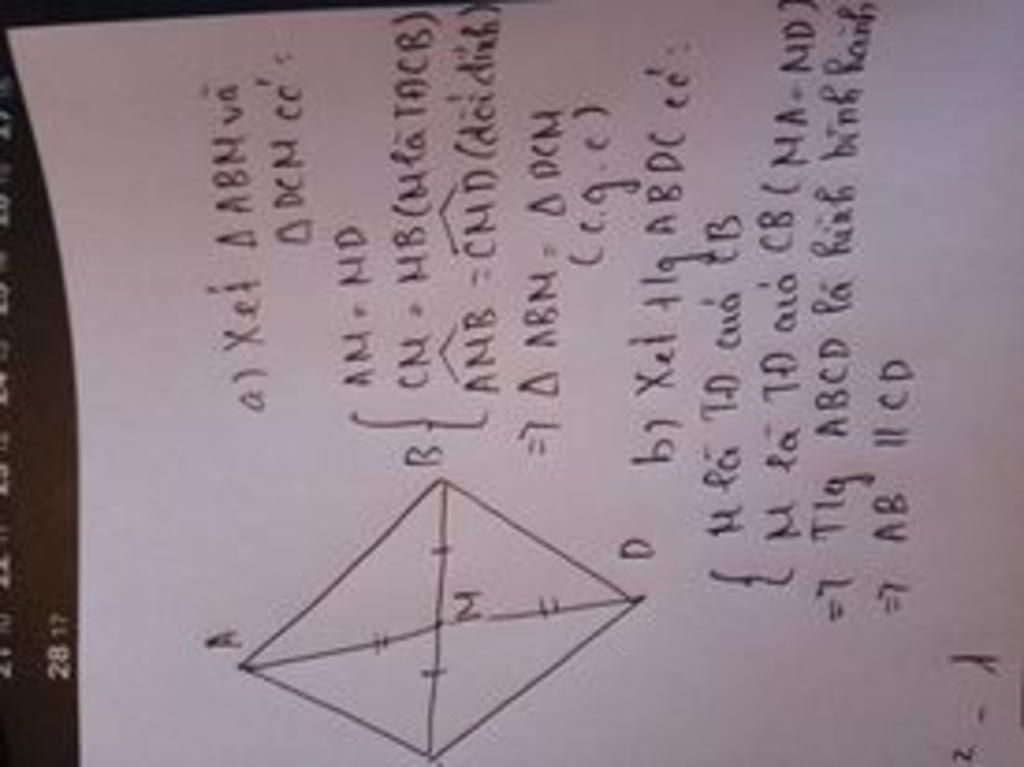 a) Xét Δ ABM và
Δ DCM có:
AM = MD
CM = MB (M là TĐ CB)
AMB = CMD (đối đỉnh)
=> Δ ABM = Δ DCM
(c.g.c)
b) Xét tfg ABDC có:
M là TĐ của CB
M là TĐ của CB (MA = MD)
=> Tfg ABCD là hình bình hành
=> AB // CD
A
B
M
D
28 17